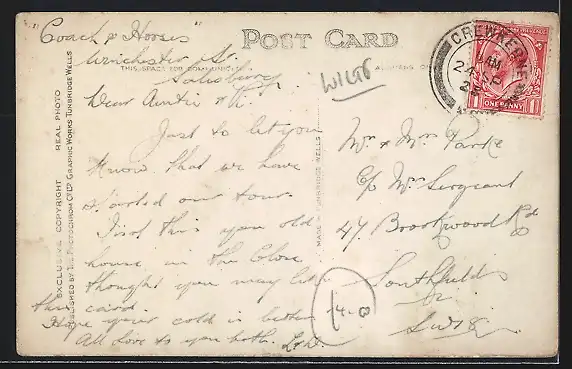 "Coach & Horses"
Winchester St.
Salisbury
POST CARD
THIS SPACE FOR
ADDRESS O
WILTS
Dear Auntie &
Just to let you
know that we have
started our tour.
this old
house in the Close
thought you may like
this card.
Hope your cold is better
All love to you both.
Mr & Mrs Parke
c/o Mrs Sergeant
47 Brookwood Rd
Southfields
SW18
14-0
CREWKERNE
AM
SP
ONE PENNY
EXCLUSIVE COPYRIGHT REAL PHOTO
PUBLISHED BY THE PHOTOCHROM CO LTD GRAPHIC WORKS TUNBRIDGE WELLS
MADE IN TUNBRIDGE WELLS